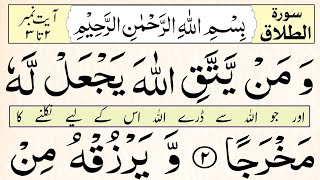 سورة
الطلاق
بِسْمِ اللهِ الرَّحْمٰنِ الرَّحِيْمِ
آیت نمبر
۲ تا ۳
وَ مَنْ يَّتَّقِ اللهَ يَجْعَلْ لَّهٗ
اور جو اللہ سے ڈرے اللہ اس کے لیے نکلنے کا
مَخْرَجًا ۲ وَّ يَرْزُقْهُ مِنْ